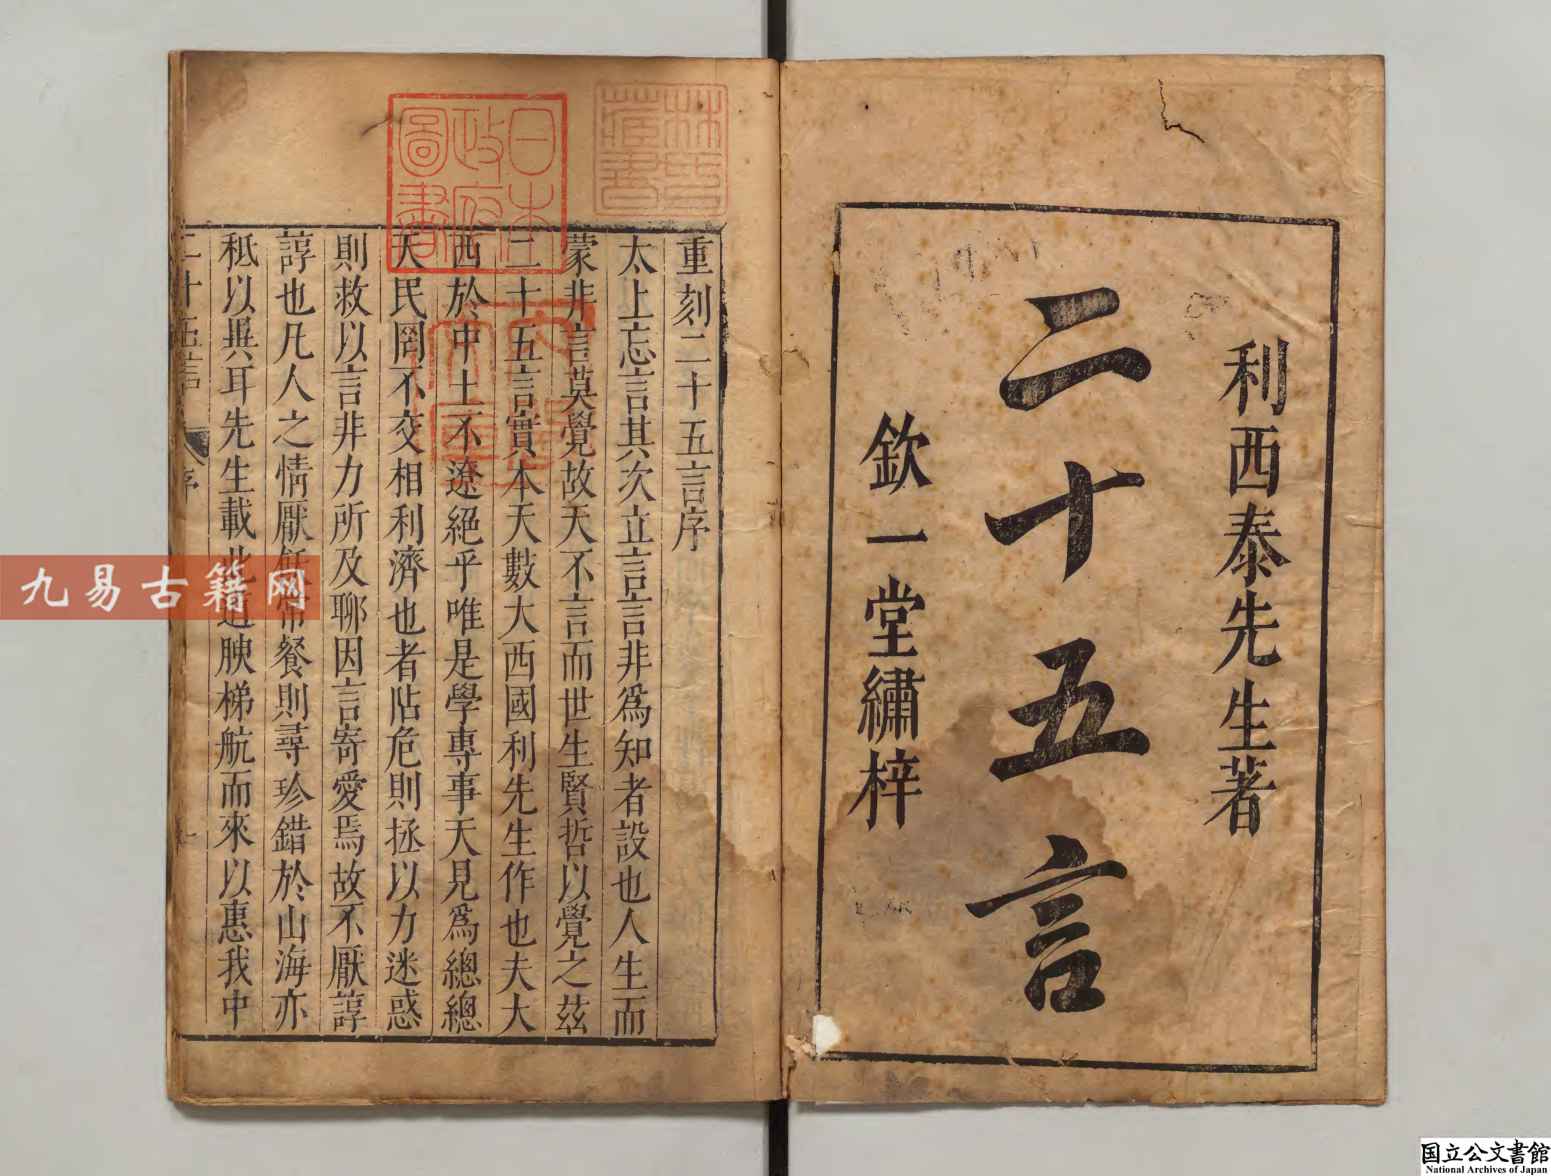 利西泰先生著
二十五言
欽一堂繡梓
重刻二十五言序
太上忘言其次立言言非爲知者設也人生而
蒙非言莫覺故天不言而世生賢哲以覺之茲
二十五言實本天數大西國利先生作也夫大
西於中土不遼絕乎唯是學專事天見爲總總
天民罔不交相利濟也者阽危則拯以力迷惑
則救以言非力所及聊因言寄愛焉故不厭諄
諄也凡人之情厭常餐則尋珍錯於山海亦
秪以異耳先生載此道腴梯航而來以惠我中
二十五言
序
日本政府圖書
九易古籍网
国立公文書館
National Archives of Japan